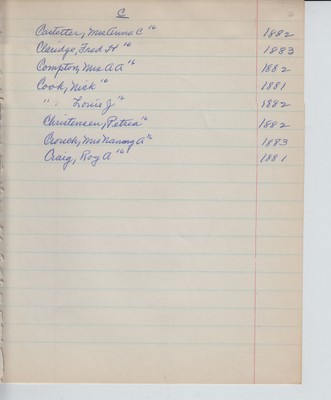 C
Castetter, Mrs Anna C "16 1882
Claridge, Fred H "16 1883
Compton, Mrs A A "16 1882
Cook, Nick "16 1881
" " Louie J "16 1882
Christensen, Petrea "16 1882
Crouch, Mrs A "16 1883
Craig, Roy A "16 1881